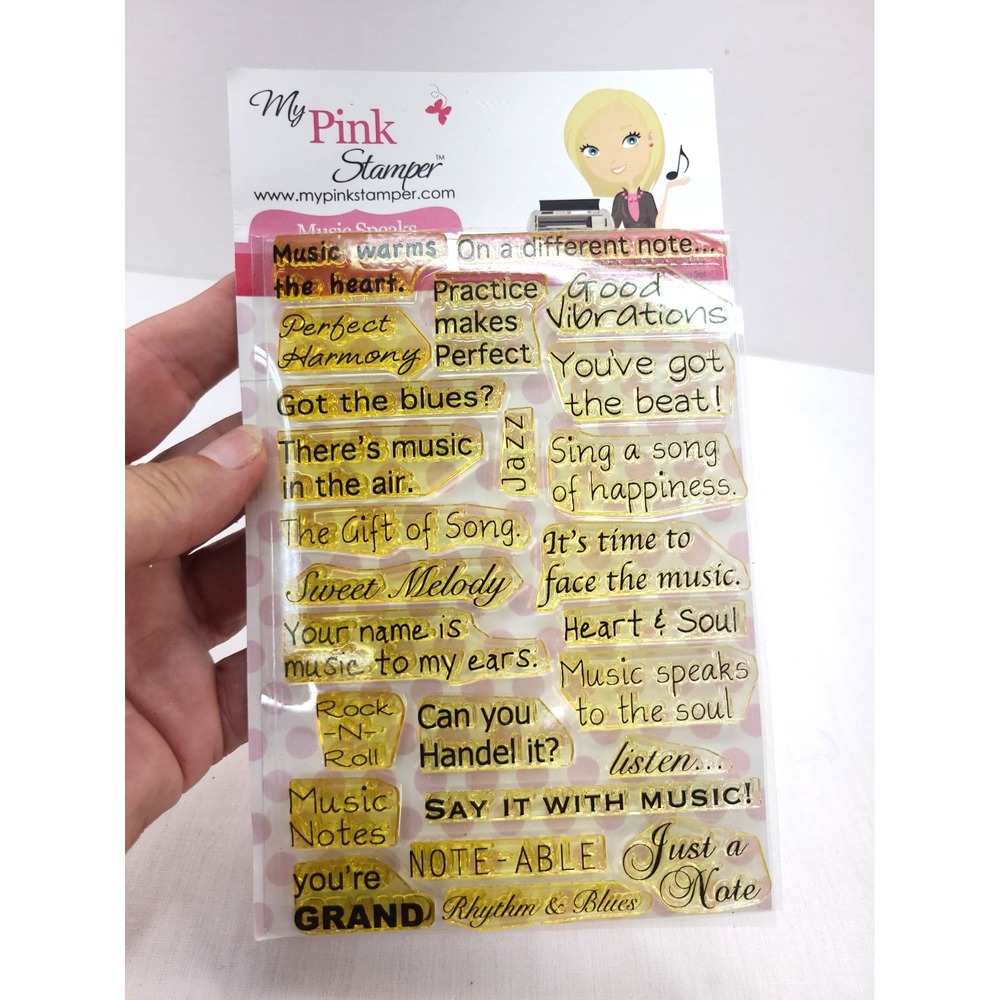 My
Pink
Stamper™
www.mypinkstamper.com
Music Speaks
Music warms
the heart.
On a different note...
Practice
makes
Perfect
Good
Vibrations
Perfect
Harmony
You've got
the beat!
Got the blues?
Jazz
There's music
in the air.
Sing a song
of happiness.
The Gift of Song.
It's time to
face the music.
Sweet Melody
Heart & Soul
Your name is
music to my ears.
Music speaks
to the soul
Rock
-N-
Roll
Can you
Handel it?
listen...
Music
Notes
SAY IT WITH MUSIC!
NOTE-ABLE
Just a
Note
you're
GRAND
Rhythm & Blues